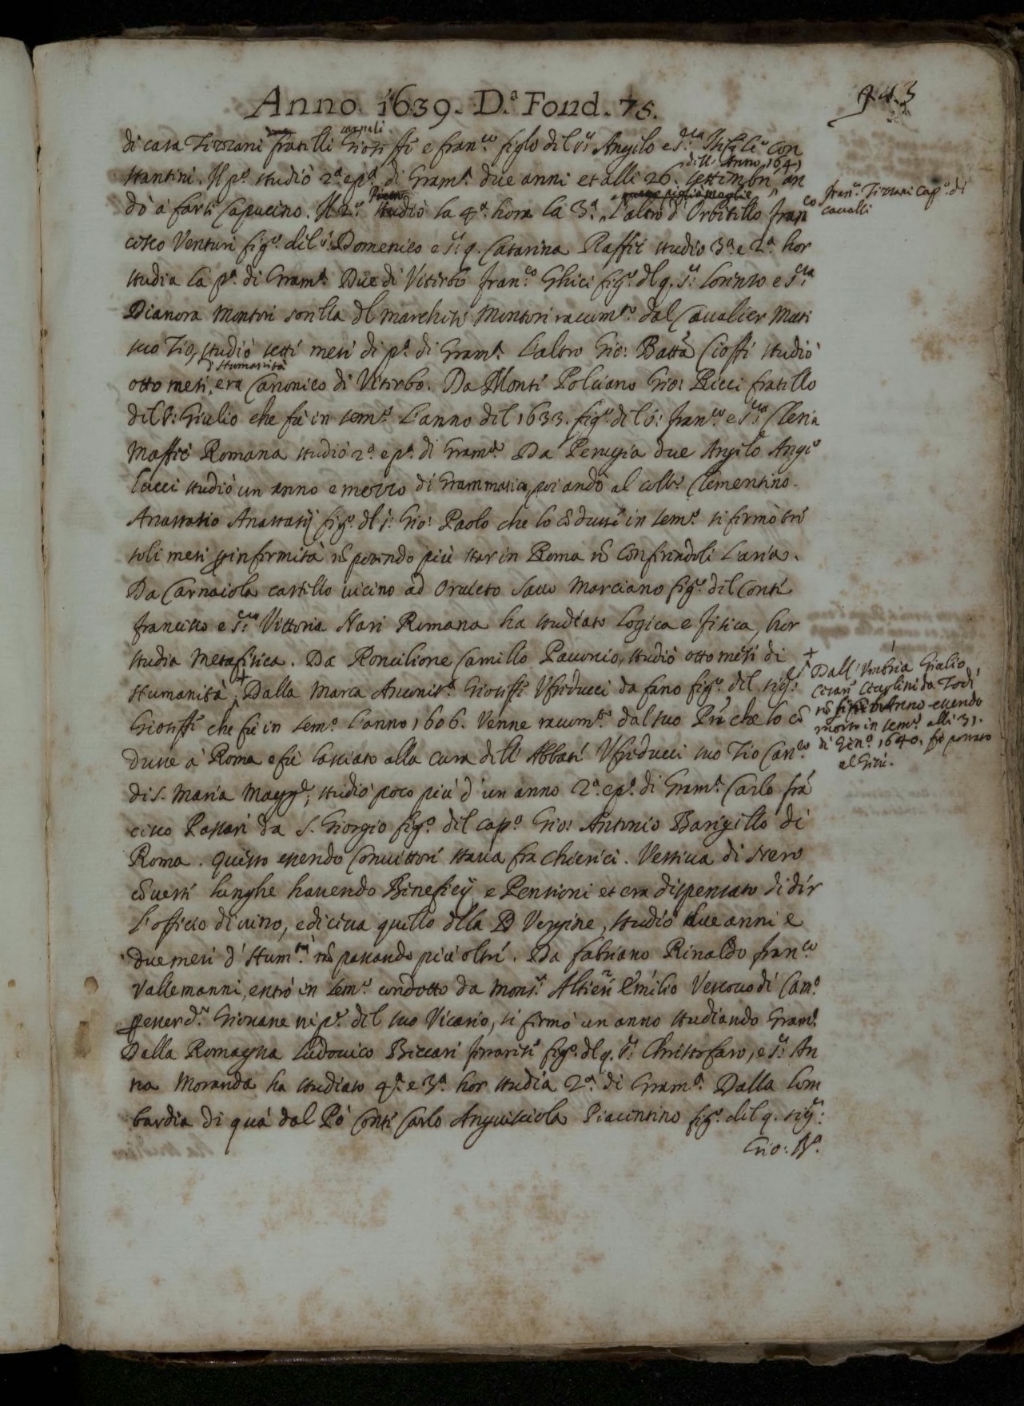 Anno 1639. D.ª Fond. 75.
di casa Tizzani fratelli Gioseffe e Fran.co figlo del s.r Angilo e S.ra Con
stantini. Il p.º studiò 2.ª e p.ª di Gram.ª due anni et alli 26. settembre an
dell'Anno 1641
dò à farsi Capucino. Il 2.º studiò la 4.ª hora la 3.ª L'altro d'Orbitello Fran
Fran.º Tizzani cap.º di
cavalli
cesco Venturi fig.º del s.r Domenico e S.ra q. Catarina Raffii studiò 3.ª e 2.ª hor
studia la p.ª di Gram.ª Due di Viterbo Fran.co Ghici fig.º del q. S.r Lorenzo e S.ra
Dianora Montori sorella del Marchese Montori racom.to dal Cavalier Mati
suo Tio, studiò setti mesi di p.ª di Gram.ª L'altro Gio: Batta Cioffi studiò
d'Humanità
otto mesi, era Canonico di Viterbo. Da Monte Polciano Gio: Ricci fratello
del S.r Giulio che fù in sem.º l'anno del 1633. fig.º del s.r Fran.co e S.ra Cleria
Maffeo Romana studiò 2.ª e p.ª di Gram.ª Da Perugia due Angilo Angi
lucci studiò un anno e mezzo di Grammatica, poi andò al coll.º Clementino.
Anastasio Anastasij fig.º del s.r Gio: Paolo che lo cōdusse in sem.º si fermò tre
soli mesi per infermità nō potendo più star in Roma nō confrendoli l'aria.
Da Carnaiola castello vicino ad Orvieto Marciano fig.º del Conte
Francesco e S.ra Vittoria Nari Romana ha studiato Logica e Fisica, hor
studia Metafisica. Da Roncilione Camillo Pavonio, studiò otto mesi di
Humanità + Dalla Marca Anconit.ª Gioseffe Ufreducci da Fano fig.º del sig.r
+ Dall'Umbria Giulio
Cesare da Todi
essendo
morto in sem.º alli 31.
di Gen.º 1640. fù portato
al Giesù.
Gioseffe che fù in sem.º l'anno 1606. Venne racom.to dal suo P.re che lo cō
dusse à Roma e fù lasciato alla cura dell'Abbate Ufreducci suo Tio Can.co
di S. Maria Magg.e, studiò poco più d'un anno 2.ª e p.ª di Gram.ª Carlo Frā
cesco Passari da S. Giorgio fig.º del cap.º Gio: Antonio Barigello di
Roma. Questo essendo Convittore stava fra Chierici. Vestiva di Nero
cō vesti lunghe havendo Beneficij e Pensioni et era dispensato di dir
l'officio divino, e diceva quello della B Vergine, studiò due anni e
due mesi d'Hum.tà nō passando più oltre. Da Fabriano Rinaldo Fran.co
Vallemanni, entrò in sem.º condotto da Mons.r Altieri Emilio Vescovo di Cam.º
per esser d.º Giovane nip.e del suo Vicario, si fermò un anno studiando Gram.ª
Dalla Romagna Ludovico Beccari ferrarese fig.º del q. S.r Christofaro, e S.ra An
na Moranda ha studiato 4.ª e 3.ª hor studia 2.ª di Gram.ª Dalla Lom
bardia di quà dal Pò Conte Carlo Anguisciola Piacentino fig.º del q. sig.r
Gio: B.ª